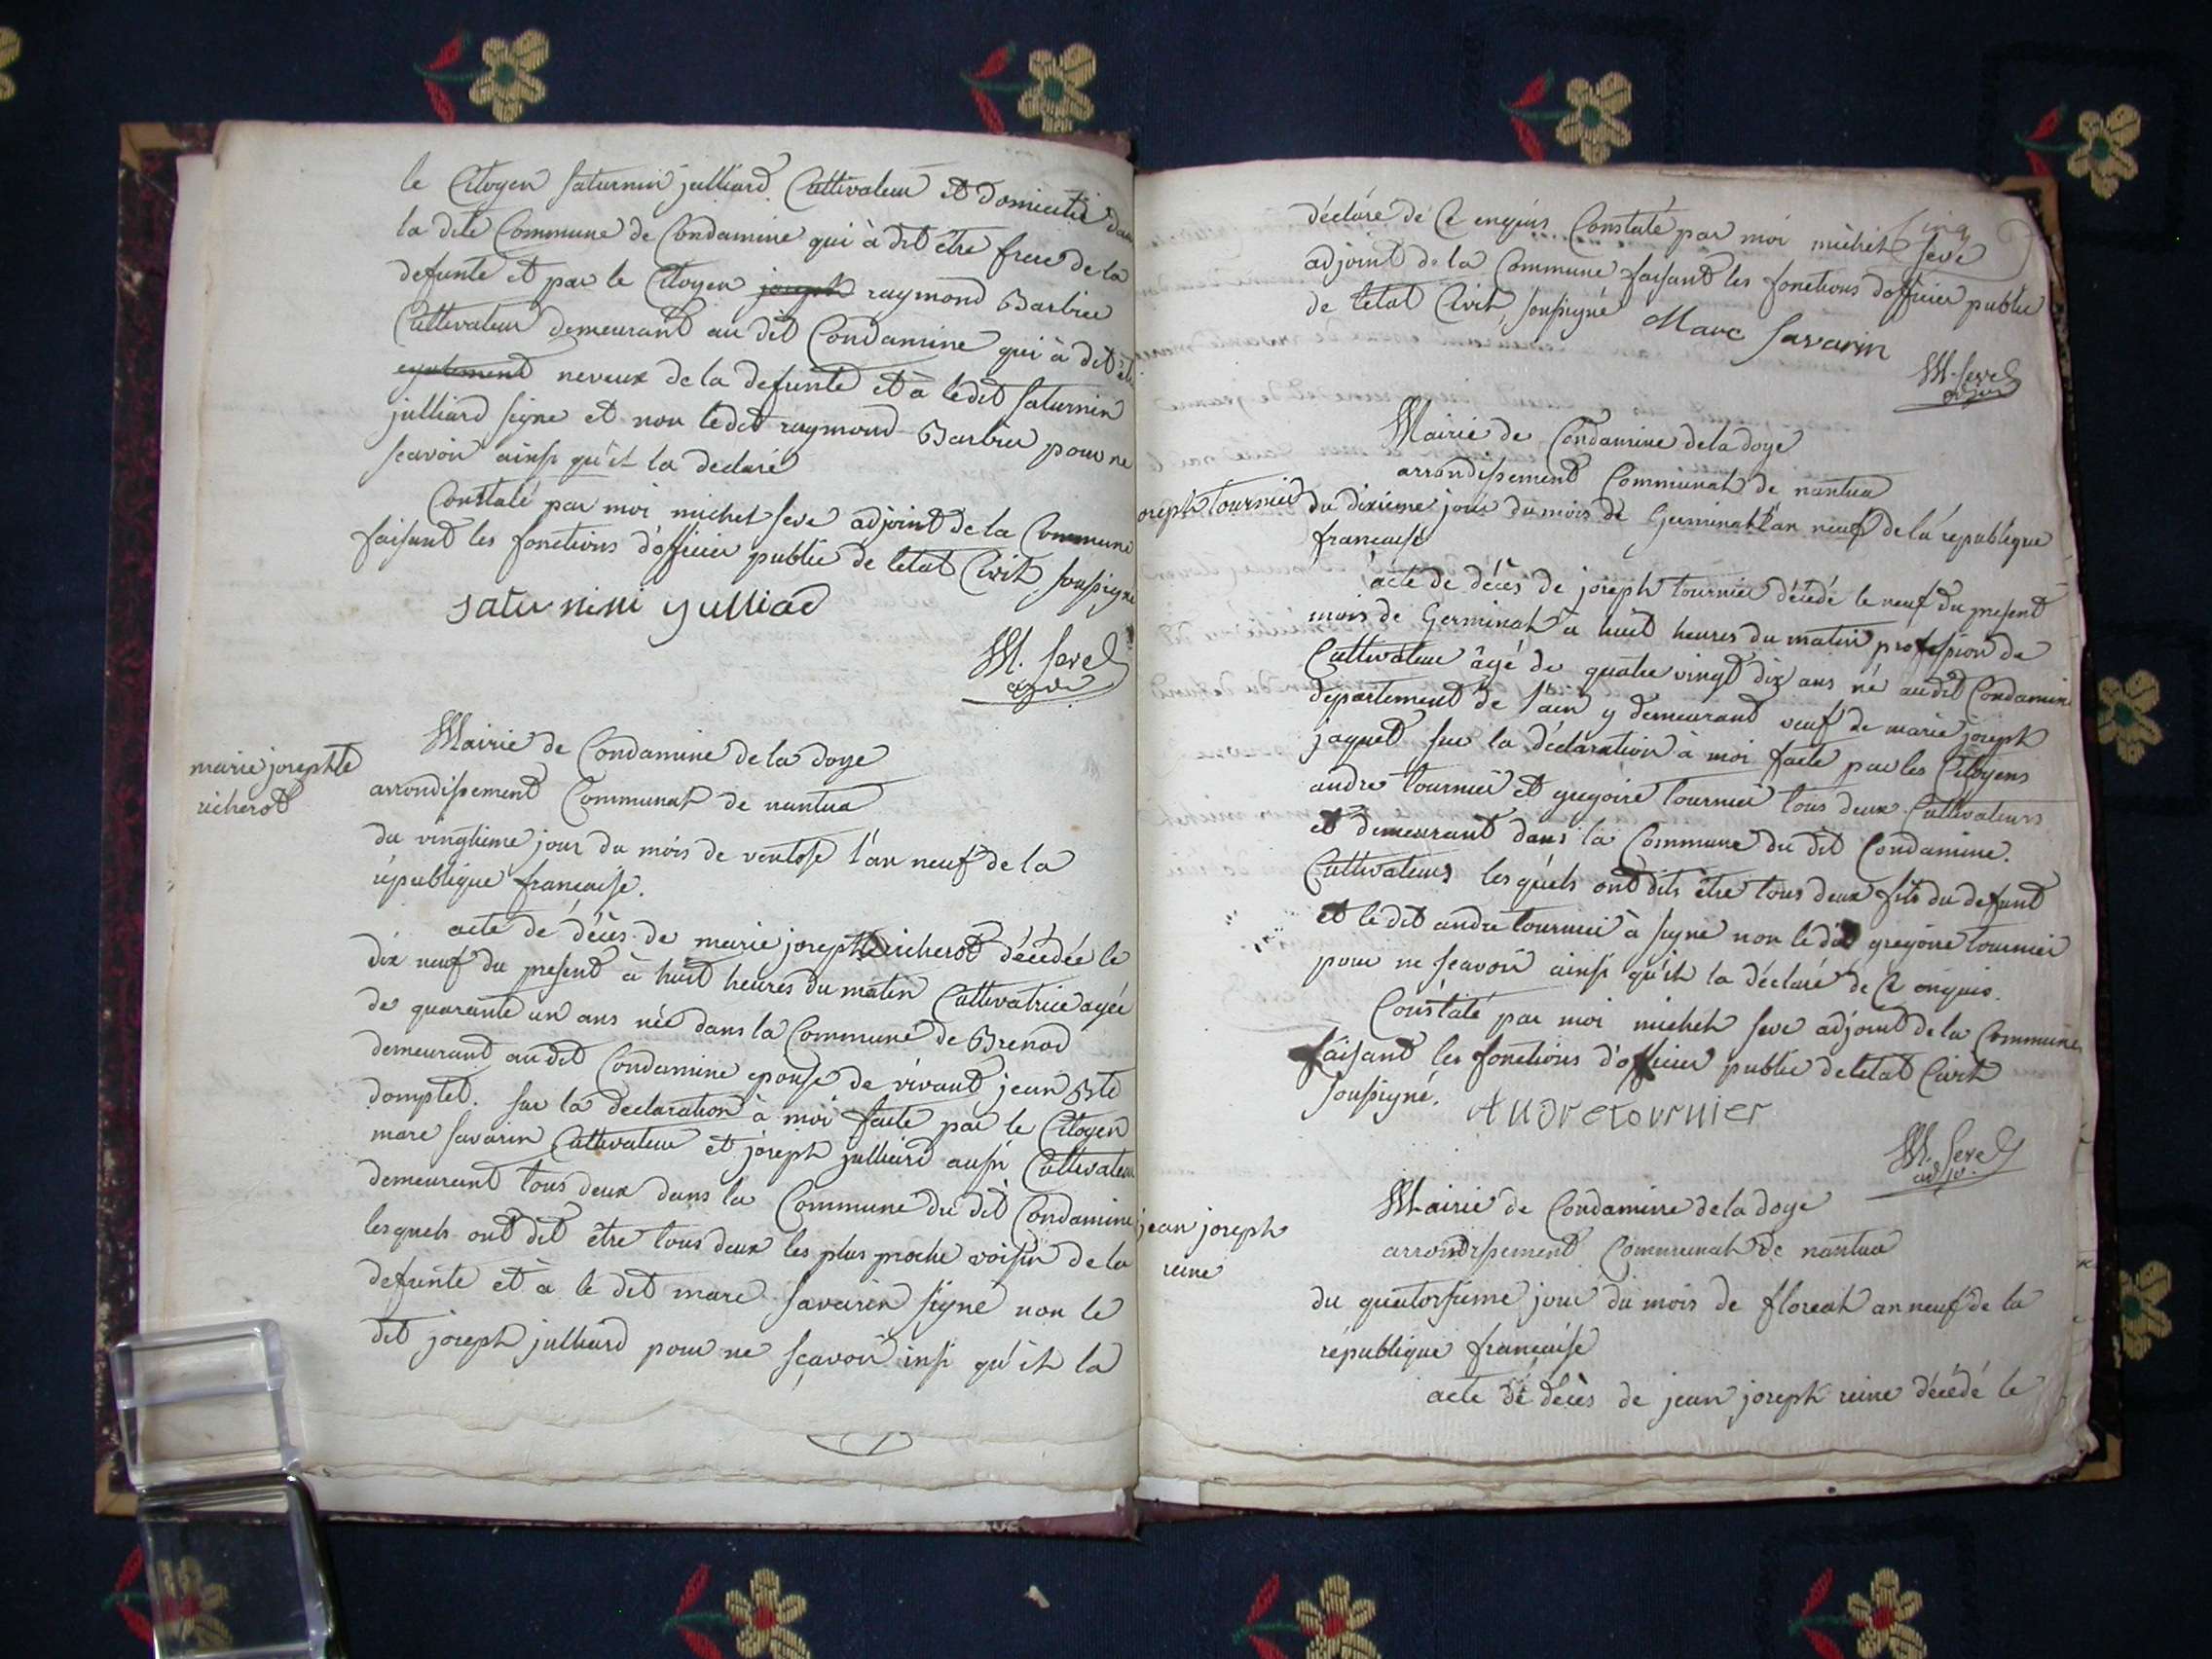 le Citoyen saturnin julliard Cultivateur et domicilié dans
la dite Commune de Condamine qui à dit être frere de la
defunte et par le Citoyen joseph raymond Barbier
Cultivateur demeurant au dit Condamine qui à dit être
egalement neveux de la defunte et à ledit saturnin
julliard signe et non ledit raymond Barbier pour ne
scavoir ainsi qu'il la declaré
Constaté par moi michel seve adjoint de la Commune
faisant les fonctions d'officier public de letat Civil soussigne
saturnini yulliad
M. seve
marie josephte
richerot
Mairie de Condamine de la doye
arrondissement Communal de nantua
du vingtieme jour du mois de ventose l'an neuf de la
république francaise.
acte de décès de marie josephte richerot décédée le
dix neuf du present à huit heures du matin Cultivatrice agée
de quarante un ans née dans la Commune de Brenod
demeurant audit Condamine epouse de vivant jean Bte
domptet. sur la declaration à moi faite par le Citoyen
marc savarin Cultivateur et joseph julliard aussi Cultivateur
demeurant tous deux dans la Commune du dit Condamine
lesquels ont dit être tous deux les plus proche voisin de la
defunte et à le dit marc savarin signé non le
dit joseph julliard pour ne sçavoir insi qu'il la
Cinq
déclare de Ce enquis. Constaté par moi michel seve
adjoint de la Commune faisant les fonctions d'officier public
de letat Civil, soussigné
Marc savarin
M. seve
adjoint
Mairie de Condamine de la doye
arrondissement Communal de nantua
oseph tournier
du dixieme jour du mois de Germinal l'an neuf de la republique
francaise
acte de décès de joseph tournier décédé le neuf du present
mois de Germinal à huit heures du matin profession de
Cultivateur âgé de quatre vingt dix ans né audit Condamine
departement de l'ain y demeurant veuf de marie joseph
jaquet sur la déclaration à moi faite par les Citoyens
andre tournier et gregoire tournier tous deux Cultivateurs
et demeurant dans la Commune du dit Condamine.
Cultivateurs lesquels ont dits être tous deux fils du defunt
et le dit andre tournier à signé non le dit gregoire tournier
pour ne scavoir ainsi qu'il la déclaré de Ce enquis.
Constaté par moi michel seve adjoint de la Commune
faisant les fonctions d'officier public de letat Civil
soussigné.
Andretournier
M. seve
adjt.
Mairie de Condamine de la doye
arrondissement Communal de nantua
jean joseph
reine
du quatorsieme jour du mois de floreal an neuf de la
république francaise
acte de décès de jean joseph reine décédé le